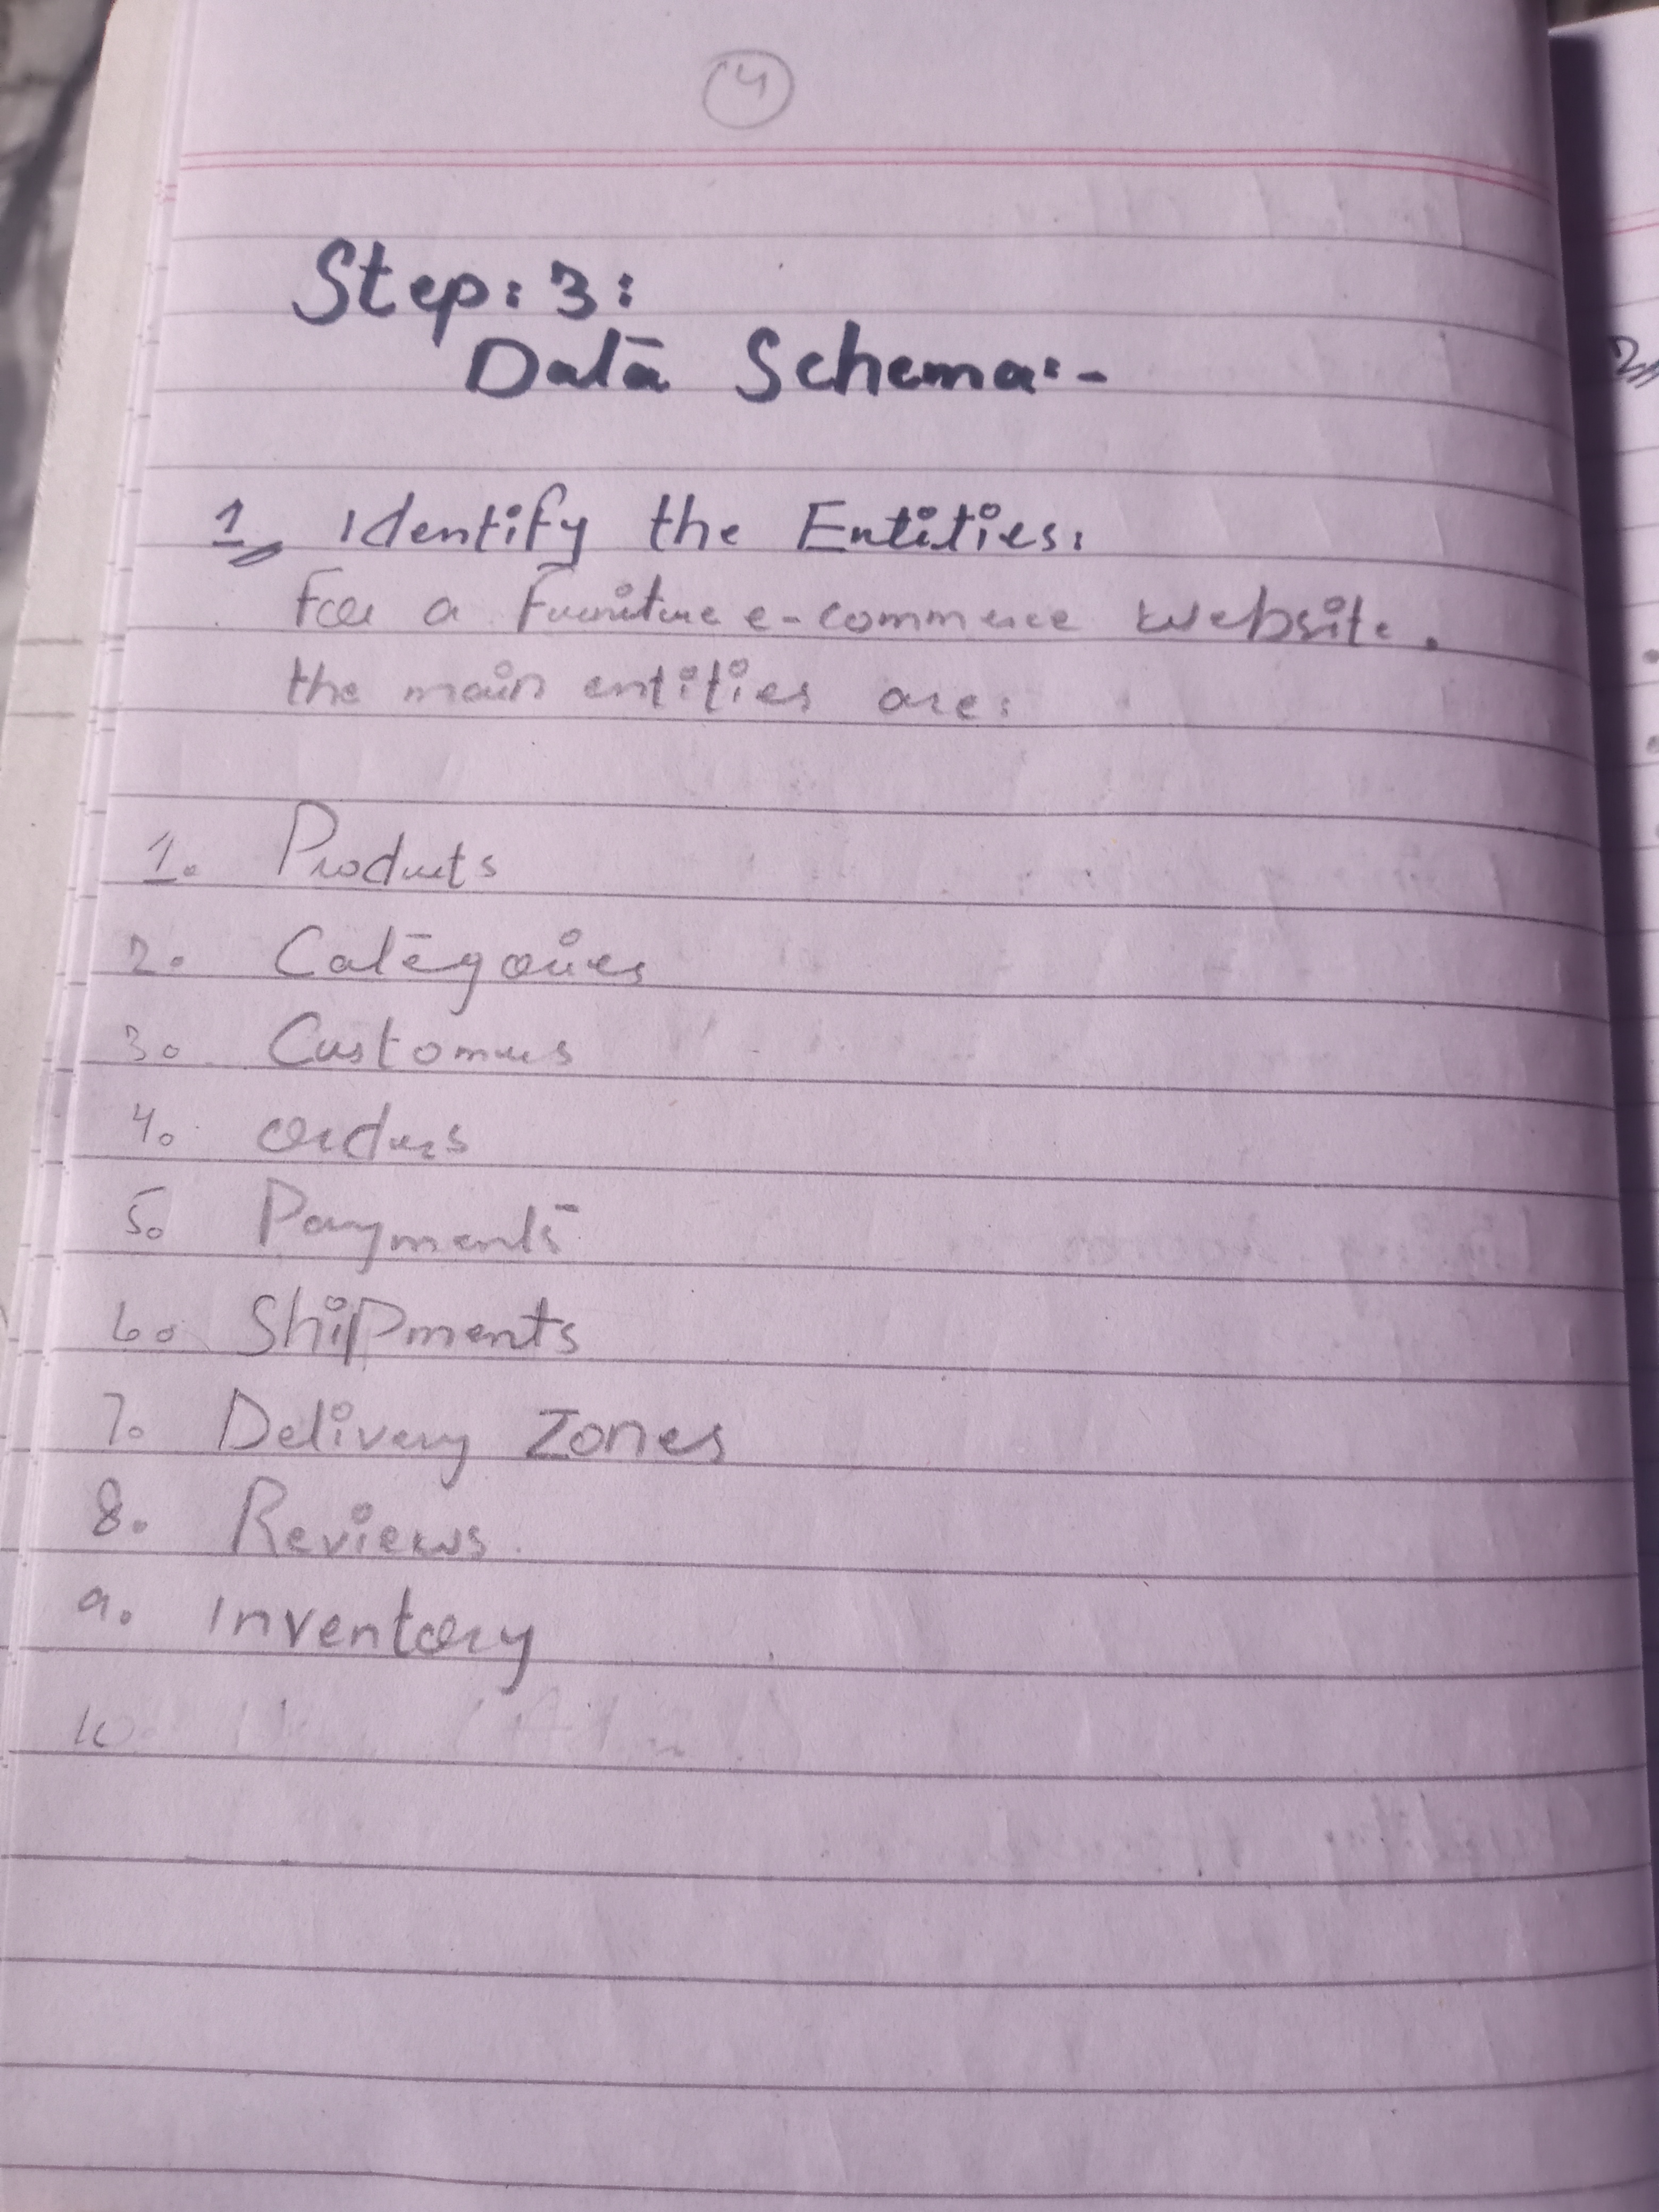 4
Step: 3:
Data Schema:-
1, Identify the Entities:
For a Furniture e-commerce website.
the main entities are:
1. Products
2. Categories
3. Customers
4. orders
5. Payments
6. Shipments
7. Delivery Zones
8. Reviews
9. Inventory
10